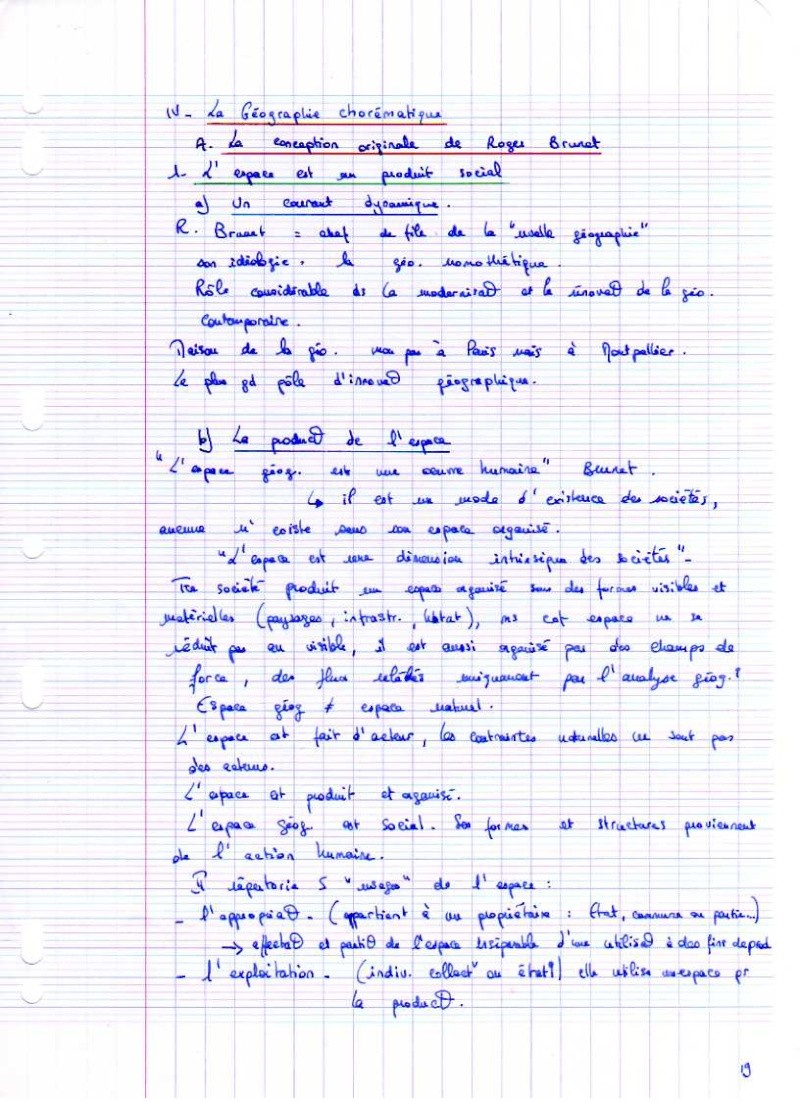 IV - La Géographie chorématique
A. La conception originale de Roger Brunet
1. L'espace est un produit social
a) Un courant dynamique.
R. Brunet = chef de file de la "nvelle géographie"
son idéologie : la géo. nomothétique.
Rôle considérable ds la modernisat° et la rénovat° de la géo.
Contemporaine.
Maison de la géo. non pas à Paris mais à Montpellier.
Le plus gd pôle d'innovat° géographique.
b) La product° de l'espace
"L'espace géog. est une oeuvre humaine" Brunet.
↳ il est un mode d'existence des sociétés,
aucune n'existe sans son espace organisé.
"L'espace est une dimension intrinsèque des sociétés"-
Tte société produit un espace organisé sous des formes visibles et
matérielles (paysages, infrastr., habitat), ms cet espace ne se
réduit pas au visible, il est aussi organisé par des champs de
force, des flux révélés uniquement par l'analyse géog.
Espace géog ≠ espace naturel.
L'espace est fait d'acteur, les contraintes naturelles ne sont pas
des acteurs.
L'espace est produit et organisé.
L'espace géog. est social. Ses formes et structures proviennent
de l'action humaine.
Il répertorie 5 "usages" de l'espace :
- l'appropriat° - (appartient à un propriétaire : Etat, commune ou partic...)
→ affectat° et partit° de l'espace inséparable d'une utilisat° à des fins de prod
- l'exploitation - (indiv. collect° ou état) elle utilise un espace pr
la product°.
19